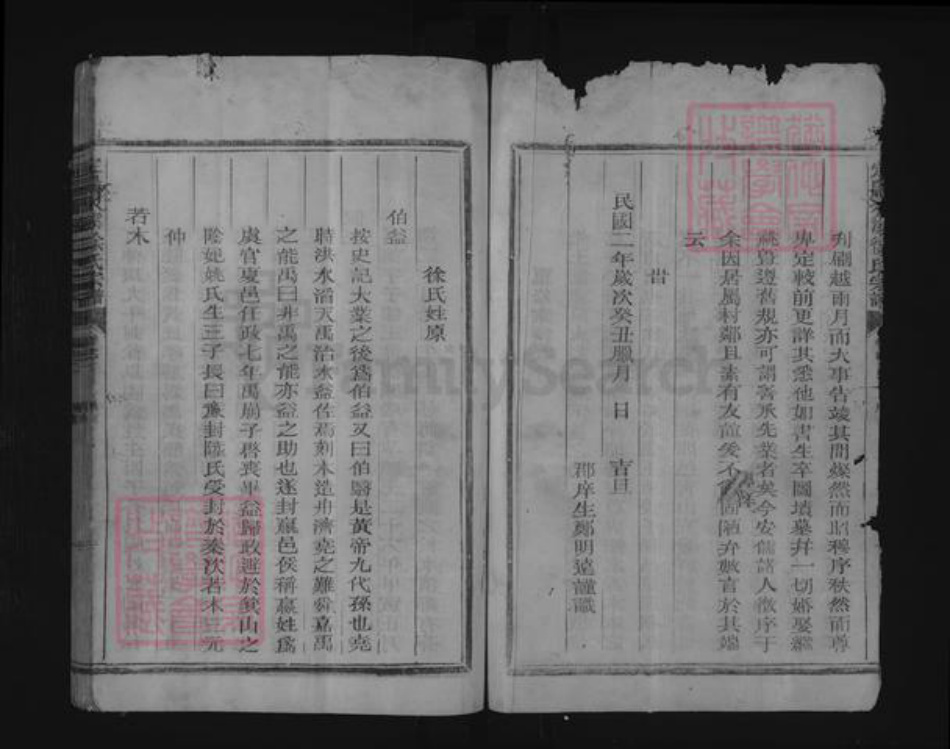 刋刷越兩月而大事告竣其間燦然而昭穆序秩然而尊
卑定較前更詳其悉他如書生卒圖墳墓并一切婚娶繼
雖遵舊規亦可謂善承先業者矣今安儒諸人徵序于
余因居屬村鄰且素有友誼爰不固陋弁數言於其端
云
旹
民國二年歲次癸丑臘月 日 吉旦
郡庠生鄭明遠謹識
徐氏姓原
伯益
按史記大業之後爲伯益又曰伯翳是黃帝九代孫也堯
時洪水滔天禹治水益佐焉刻木造舟濟堯之難舜嘉禹
之能禹曰非禹之能亦益之助也遂封嬴邑侯稱嬴姓爲
虞官夏邑任政七年禹崩子啓喪畢益歸政避於箕山之
陰妃姚氏生三子長曰封氏受封於次若木三
仲
若木
FamilySearch